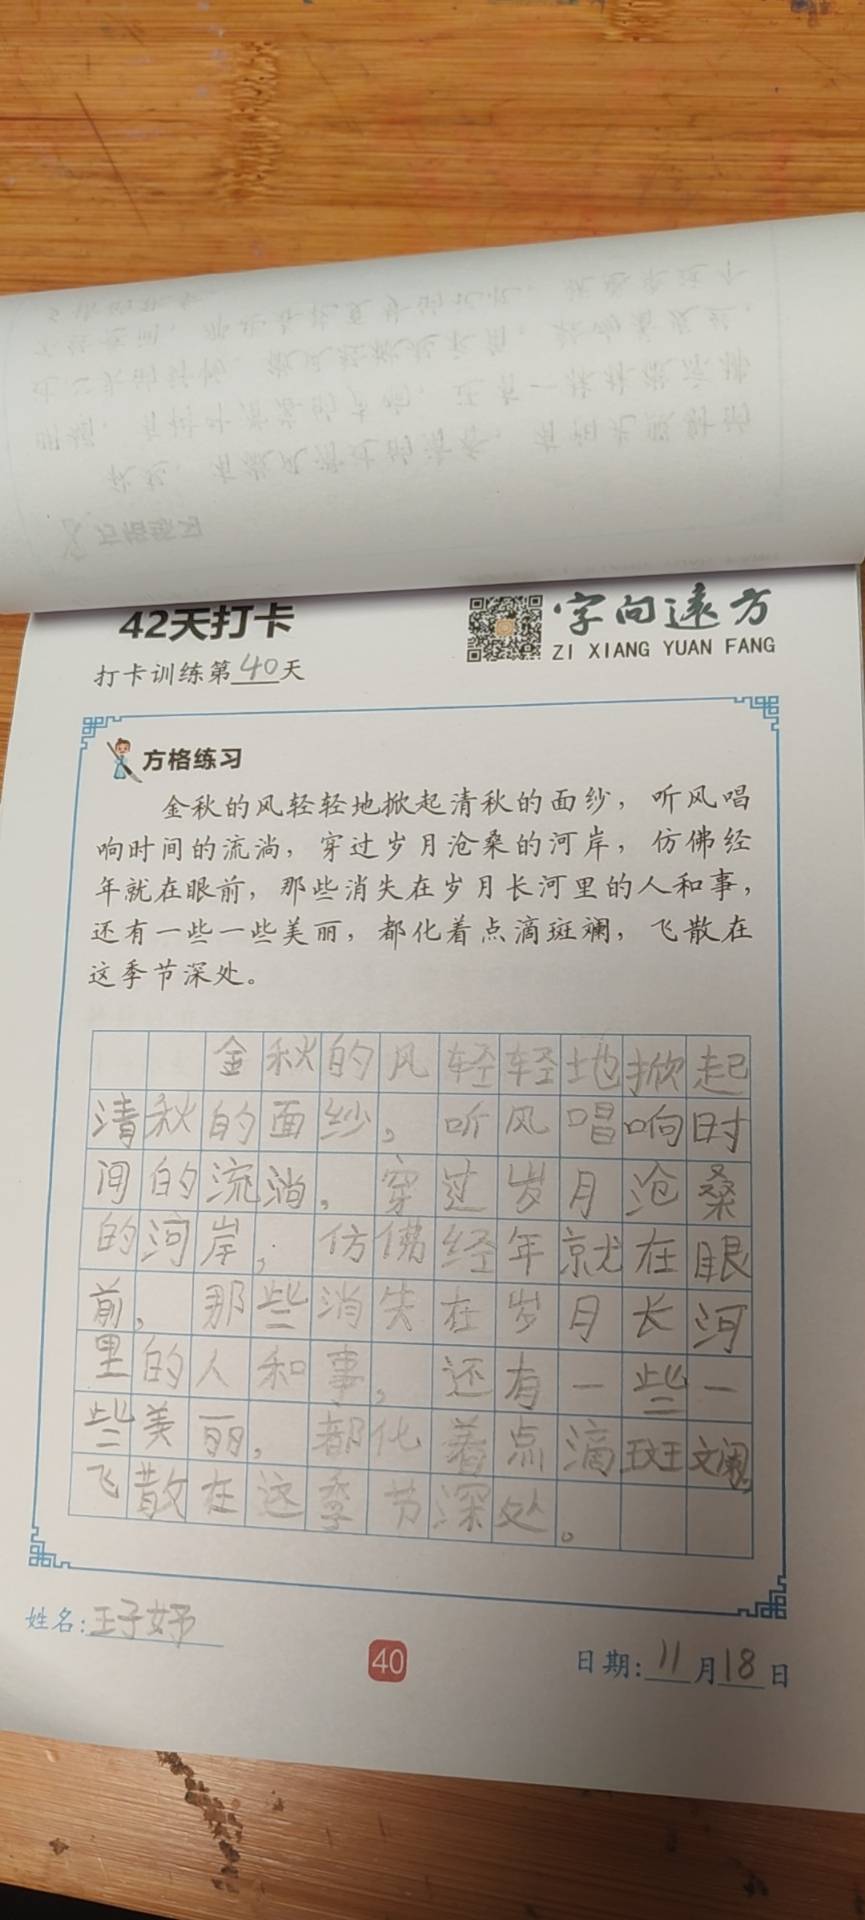 42天打卡
字向远方
ZI XIANG YUAN FANG
打卡训练第40天
方格练习
金秋的风轻轻地掀起清秋的面纱，听风唱
响时间的流淌，穿过岁月沧桑的河岸，仿佛经
年就在眼前，那些消失在岁月长河里的人和事，
还有一些一些美丽，都化着点滴斑斓，飞散在
这季节深处。
金秋的风轻轻地掀起
清秋的面纱，听风唱响时
间的流淌，穿过岁月沧桑
的河岸，仿佛经年就在眼
前，那些消失在岁月长河
里的人和事，还有一些一
些美丽，都化着点滴斑斓，
飞散在这季节深处。
姓名：王子妤
40
日期：11月18日